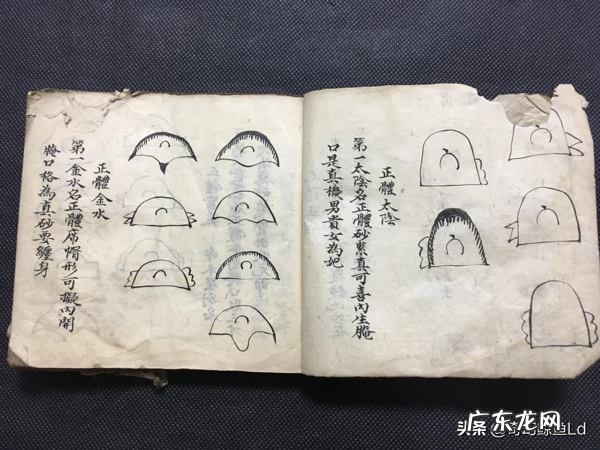 正體太陰
第一太陰名正體砂緊真可喜內生腌
口是真機男貴女為妃
正體金水
第一金水名正體席慴形可擬內開
腌口格為真砂要纏身
广东龙网
头条